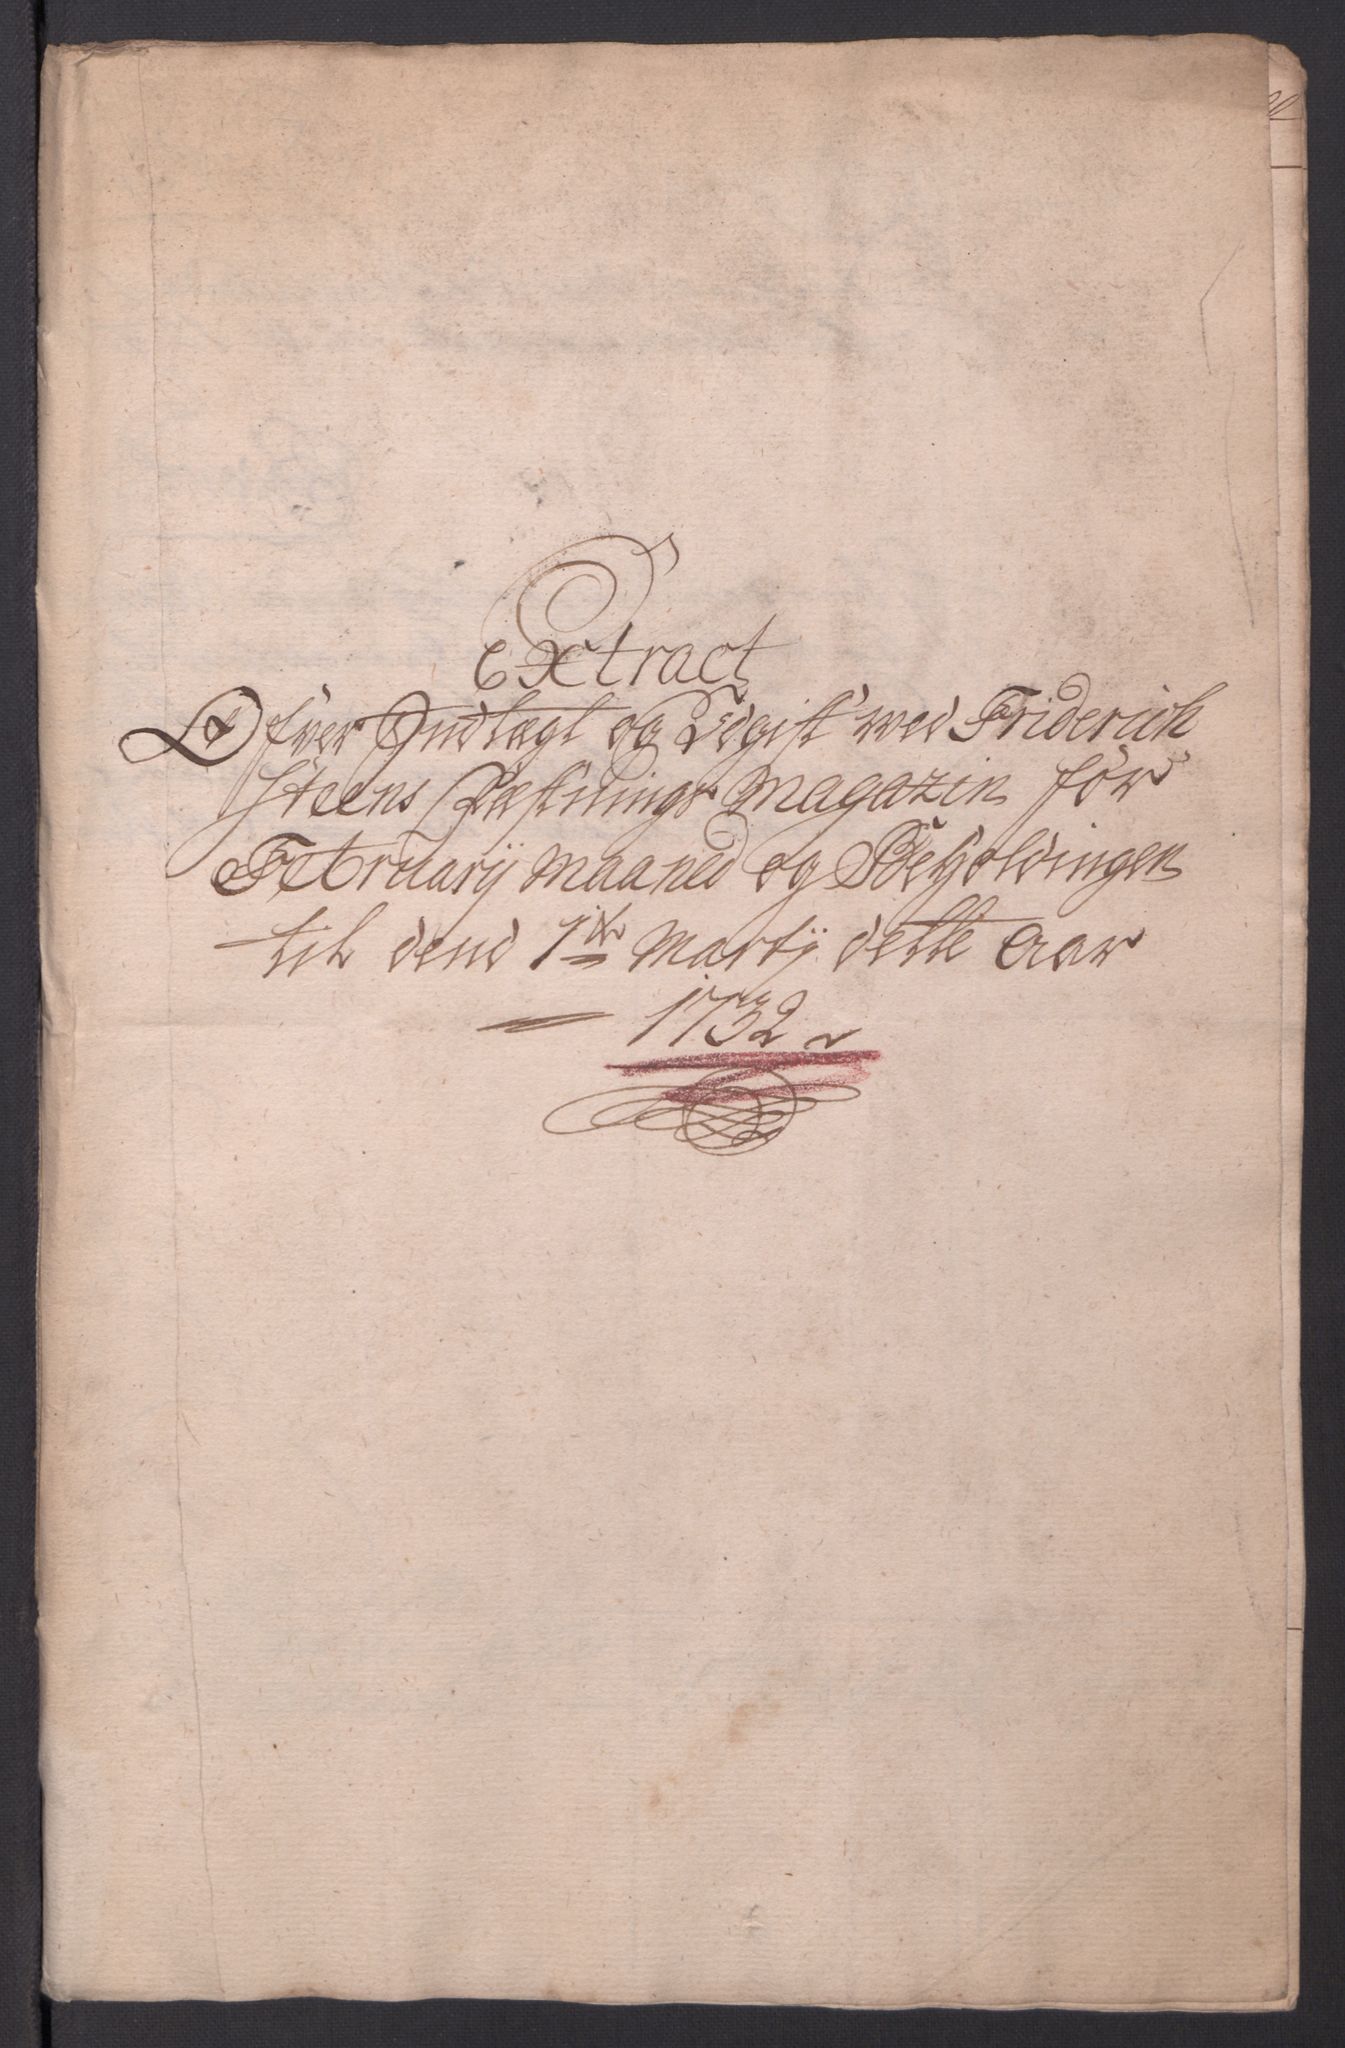 Extract
Ofver Indtægt og Udgift ved Friderich
steens Fæstnings Magazin for
Februarÿ Maaned og Beholdingen
til dend 1te Martÿ dette Aar
1732